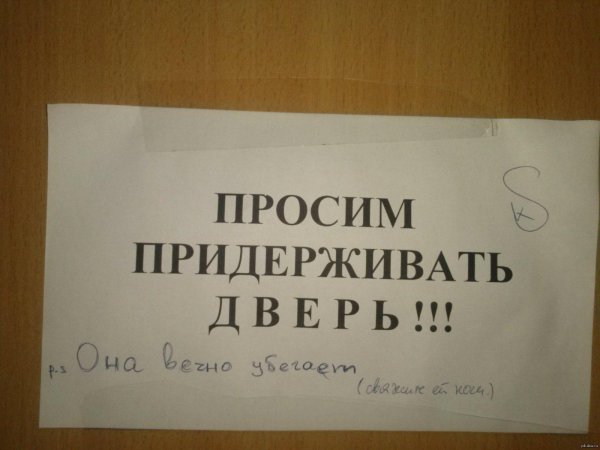 ПРОСИМ
ПРИДЕРЖИВАТЬ
ДВЕРЬ!!!
p.s Она вечно убегает
(свяжите ей ноги.)